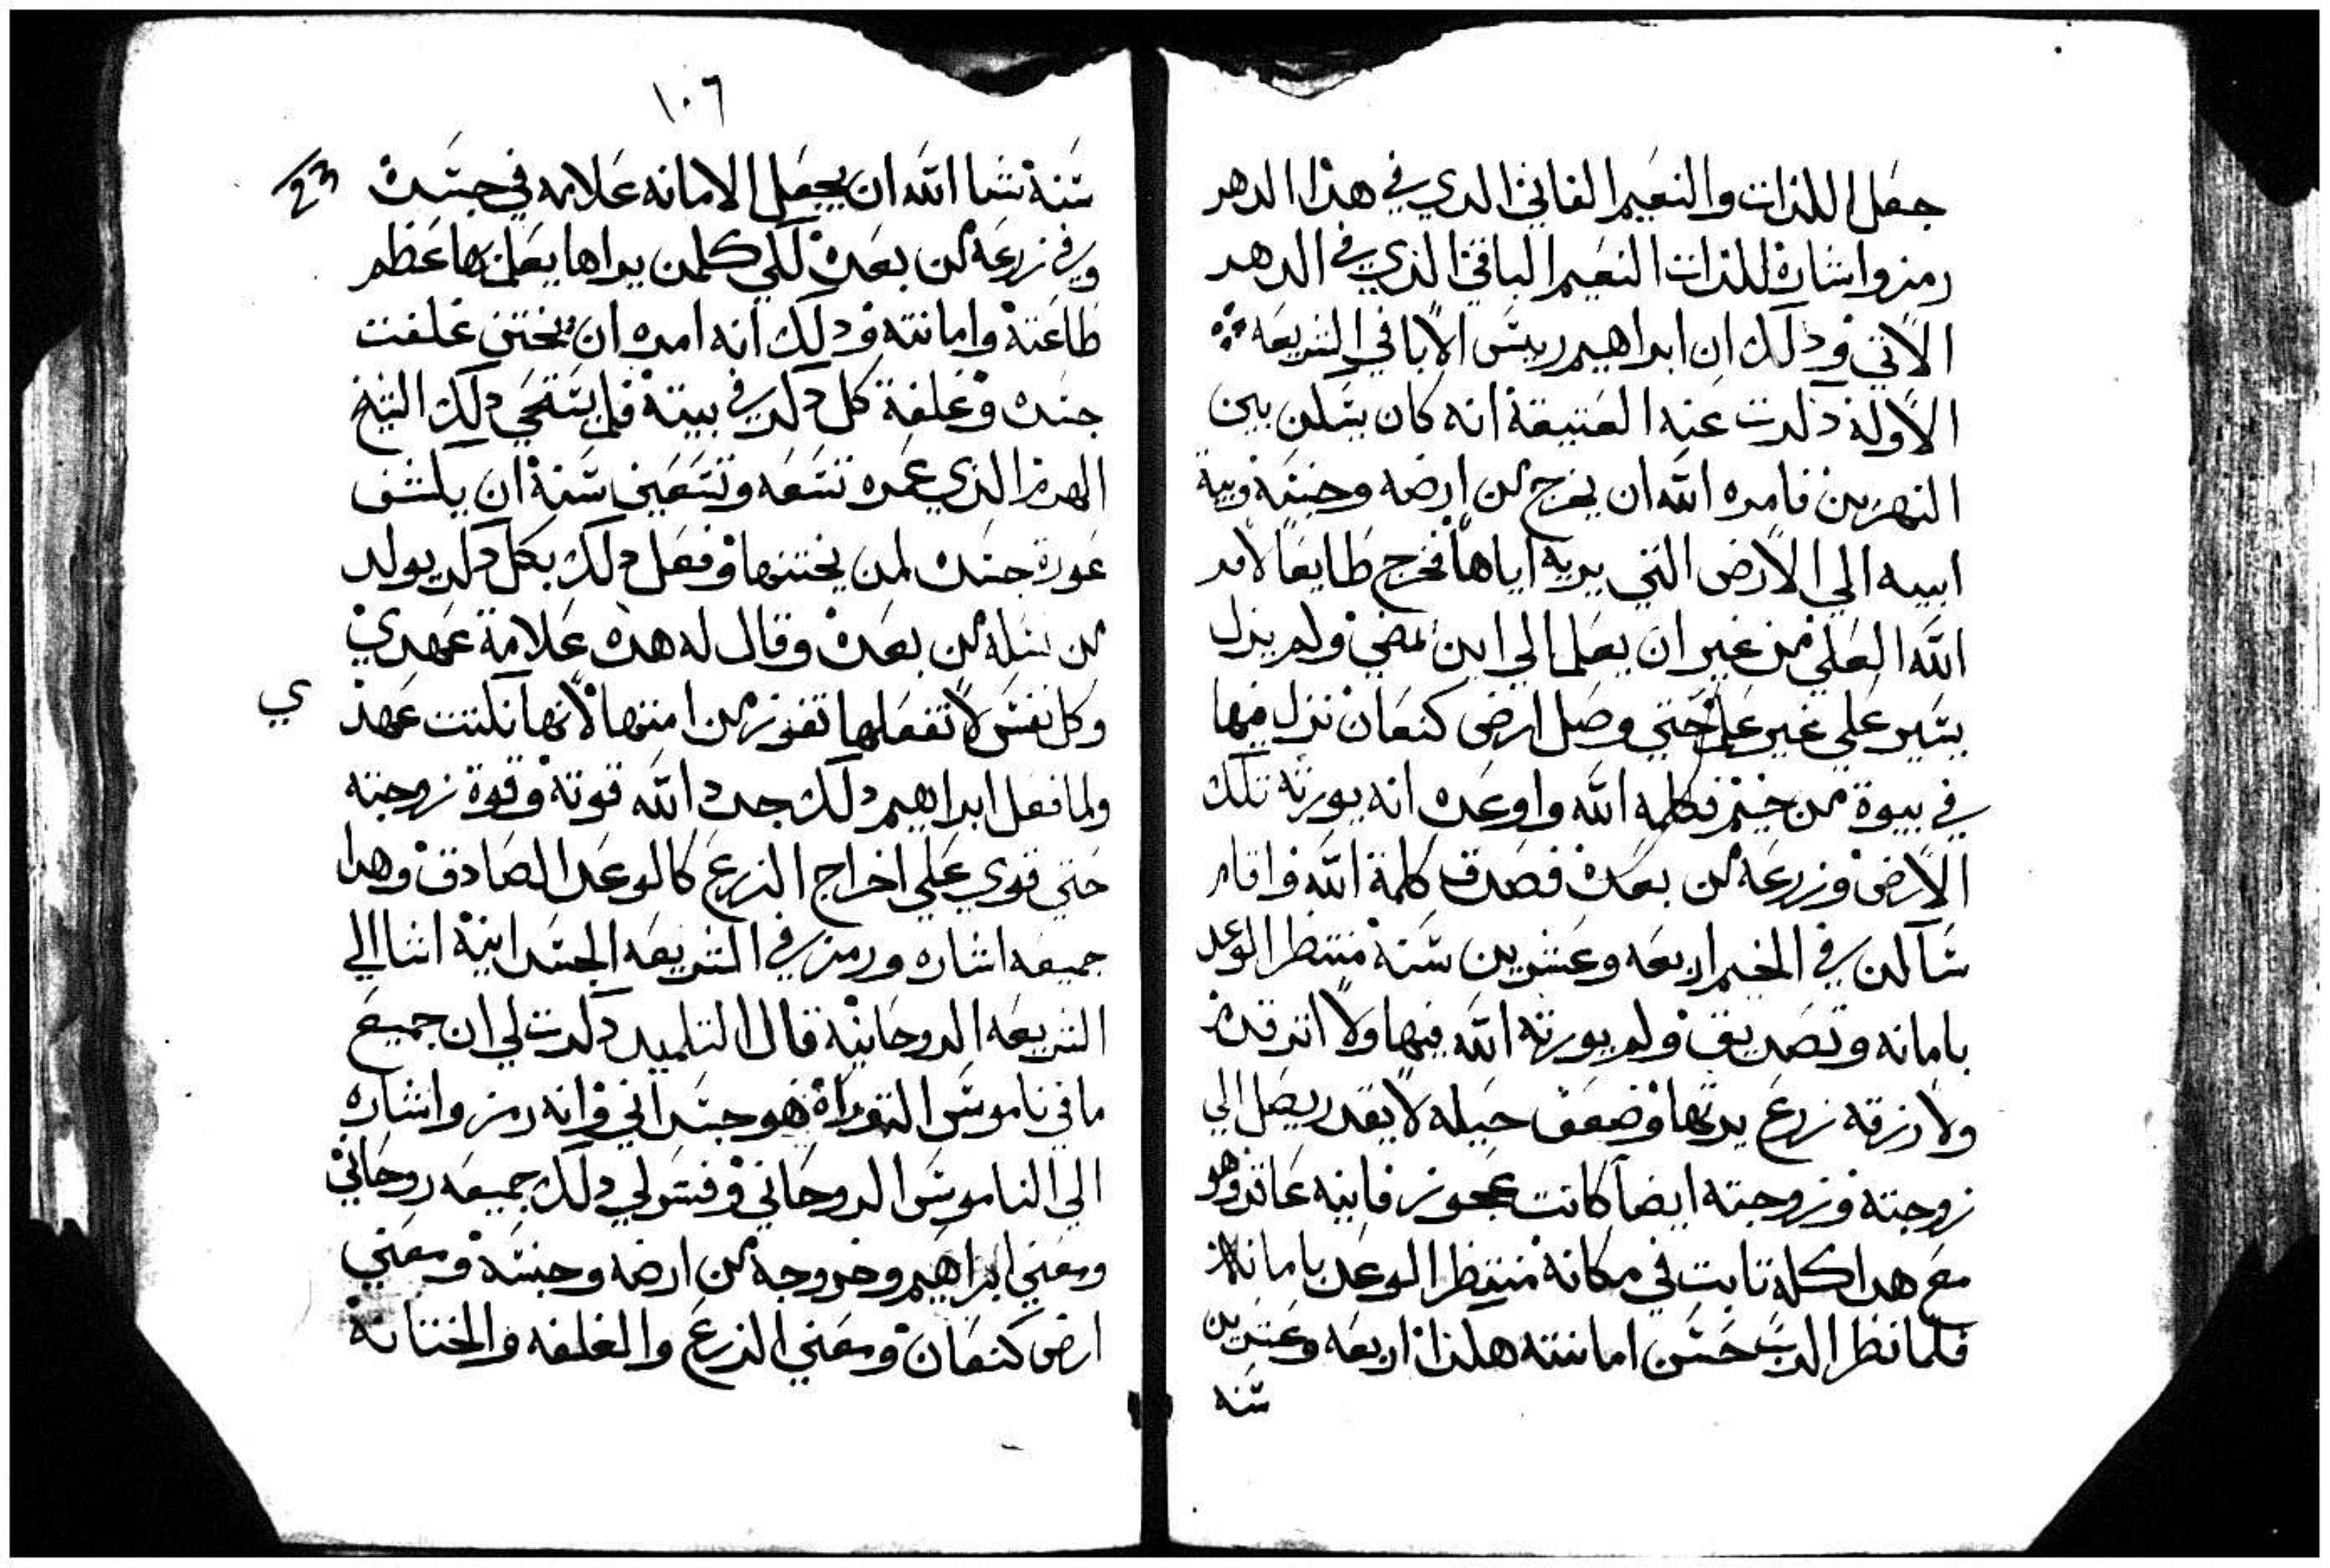 جعل اللذات والنعيم الفاني الدي في هذا الدهر
رمز واشارة للذات النعيم الباقي الذي في الدهر
الاتي ودلك ان ابراهيم رييس الابا في الشريعه
الاولة دكرت عنه العتيقة انه كان يسكن بين
النهرين فامره الله ان يخرج من ارضه وجنسه وبية
ابيه الي الارض التي يريه اياها فخرج طايعا لامر
الله العلي من غير ان يعلم الي اين يمضي ولم يزل
يسير علي غير علم حتي وصل ارض كنعان نزل فيها
في بيوة من خيم فكلمه الله واوعده انه يورثه تلك
الارض وزرعه من بعده فصدق كلمة الله واقام
ساكن في الخيم اربعه وعشرين سنة منتظر الوعد
بامانه وتصديق ولم يورثه الله فيها ولا اثر قدم
ولا رزقه زرع يرثها وضعف حيله لا يقدر يصل الي
زوجته وزوجته ايضا كانت عجوز فانيه عاقر وهو
مع هدا كله تابت في مكانه منتظر الوعد بامانة
فلما نظر الرب حسن امانته هكذا اربعه وعشرين
سنه
١٠٦
سنة شا الله ان يجعل الامانه علامه في جسده
وفي زرعه من بعده لكي كلمن يراها يعلم بها عظم
طاعته وامانته ودلك انه امره ان يختن غلفت
جسده وغلفة كل دكر في بيته فلم يستحي دلك الشيخ
الهرم الذي عمره تسعه وتسعين سنة ان يكشف
عورة جسده لمن يختنها وفعل دلك بكل دكر يولد
من نسله من بعده وقال له هده علامة عهدي
وكل نفس لا تفعلها تفوز من امتها لانها نكتت عهد
ي
ولما فعل ابراهيم دلك جدد الله قوته وقوة زوجته
حتي قوي علي اخراج الزرع كالوعد الصادق وهدا
جميعه اشاره ورمز في الشريعه الجسدانية اشا الي
الشريعه الروحانية قال التلميد دكرت لي ان جميع
ما في ناموس التوراة هو جسداني وانه رمز واشاره
الي الناموس الروحاني وفسر لي دلك جميعه روحاني
ومعني ابراهيم وخروجه من ارضه وجنسه ومعني
ارض كنعان ومعني الزرع والغلفه والختانة